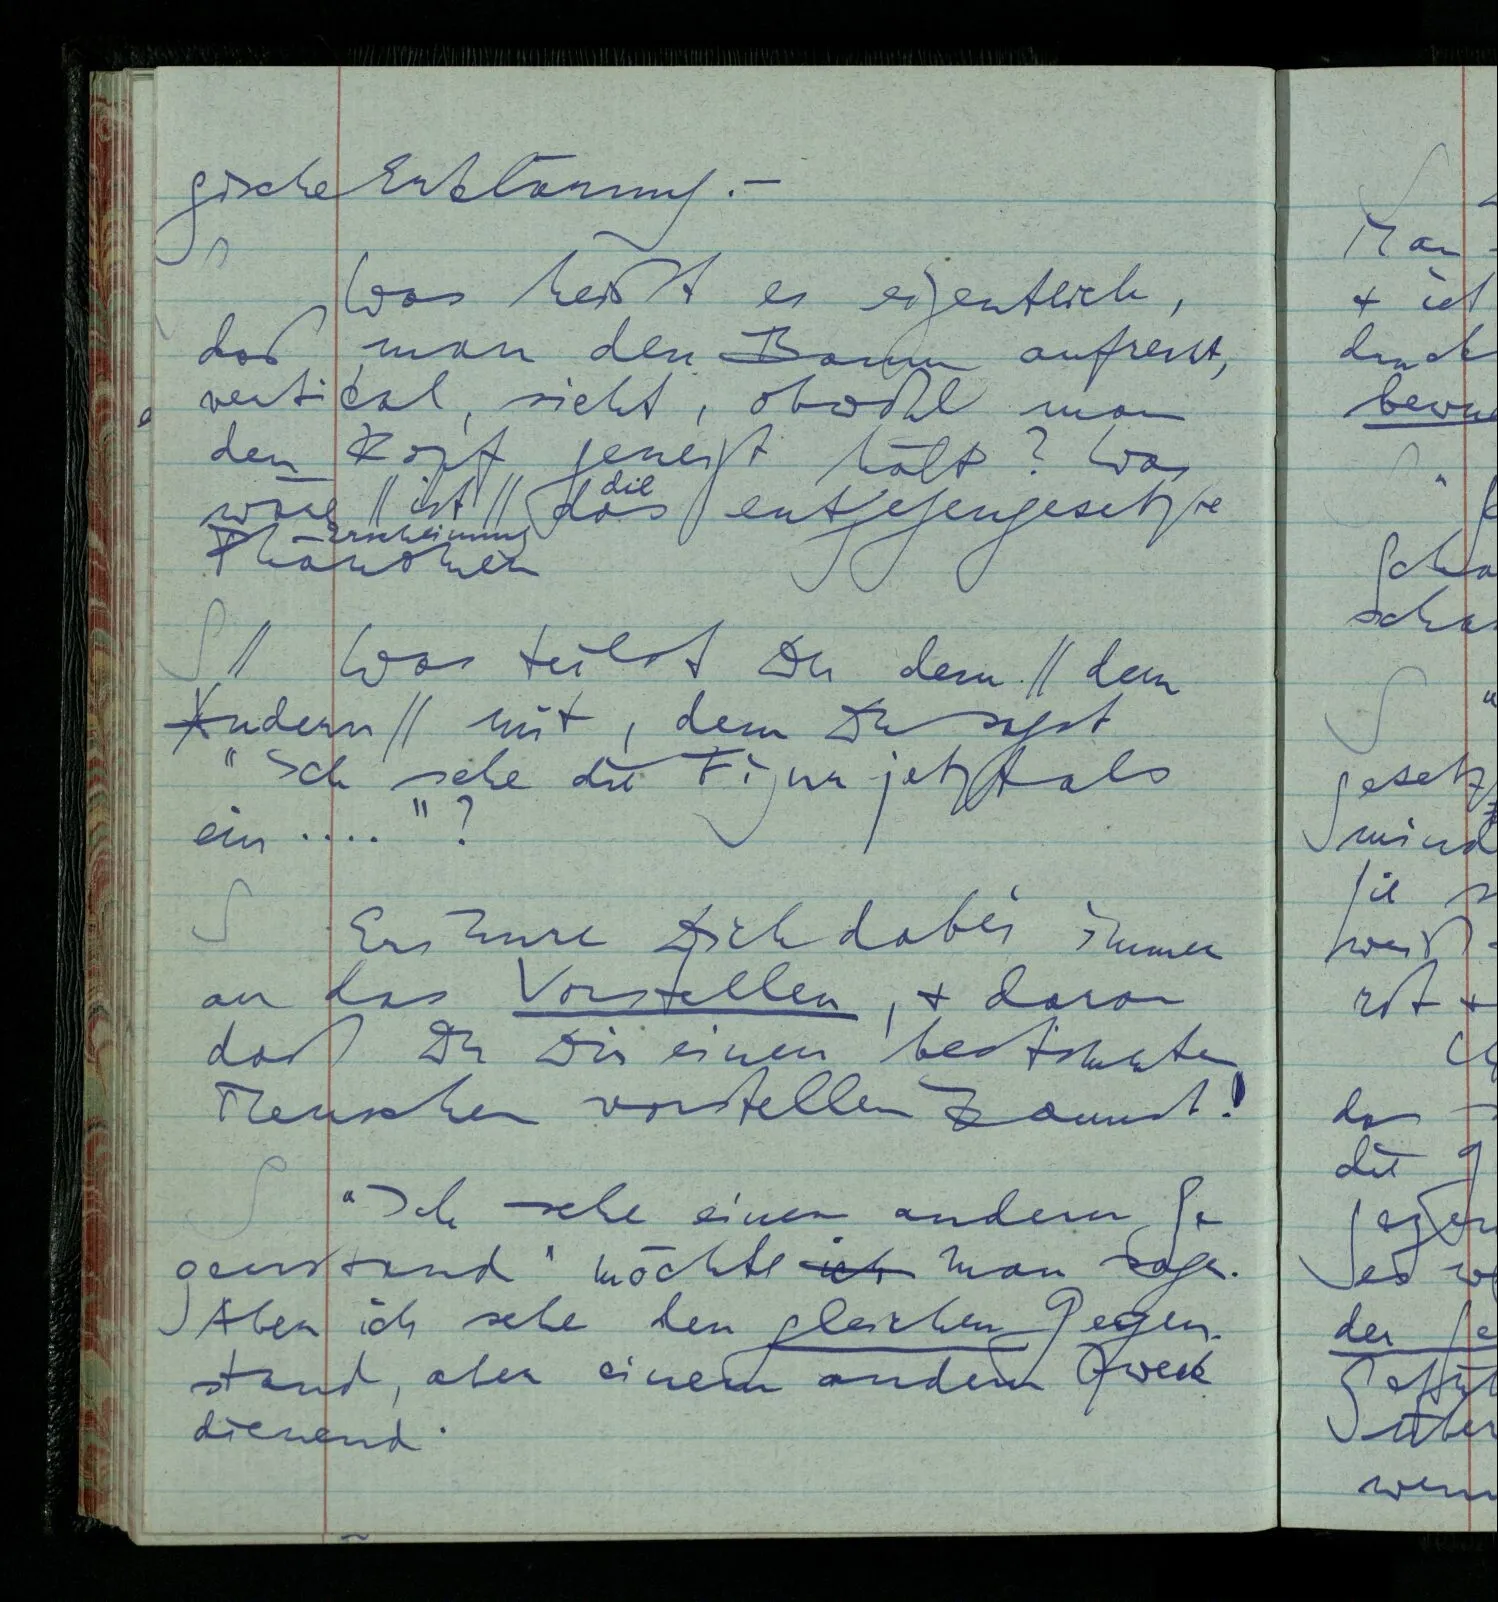 gische Erklärung. –
∫ Was heißt es eigentlich,
daß man den Baum aufrecht,
vertical, sieht, obwohl man
den Kopf geneigt hält? Was
wäre // ist // das die entgegengesetzte
Phänomen Erscheinung
∫ // Was teilst Du dem // dem
Andern // mit, dem Du sagst
"Ich sehe die Figur jetzt als
ein ...."?
∫ Erinnre Dich dabei immer
an das Vorstellen, + daran
daß Du Dir einen bestimmten
Menschen vorstellen kannst!
∫ "Ich sehe einen andern Ge
genstand" möchte ich man sagen.
Aber ich sehe den gleichen Gegen-
stand, aber einem andern Zweck
dienend.
Man
+ ist
druck
scha
gesetz
mind
sie
weiß
rot +
das
die
der Ge
wenn